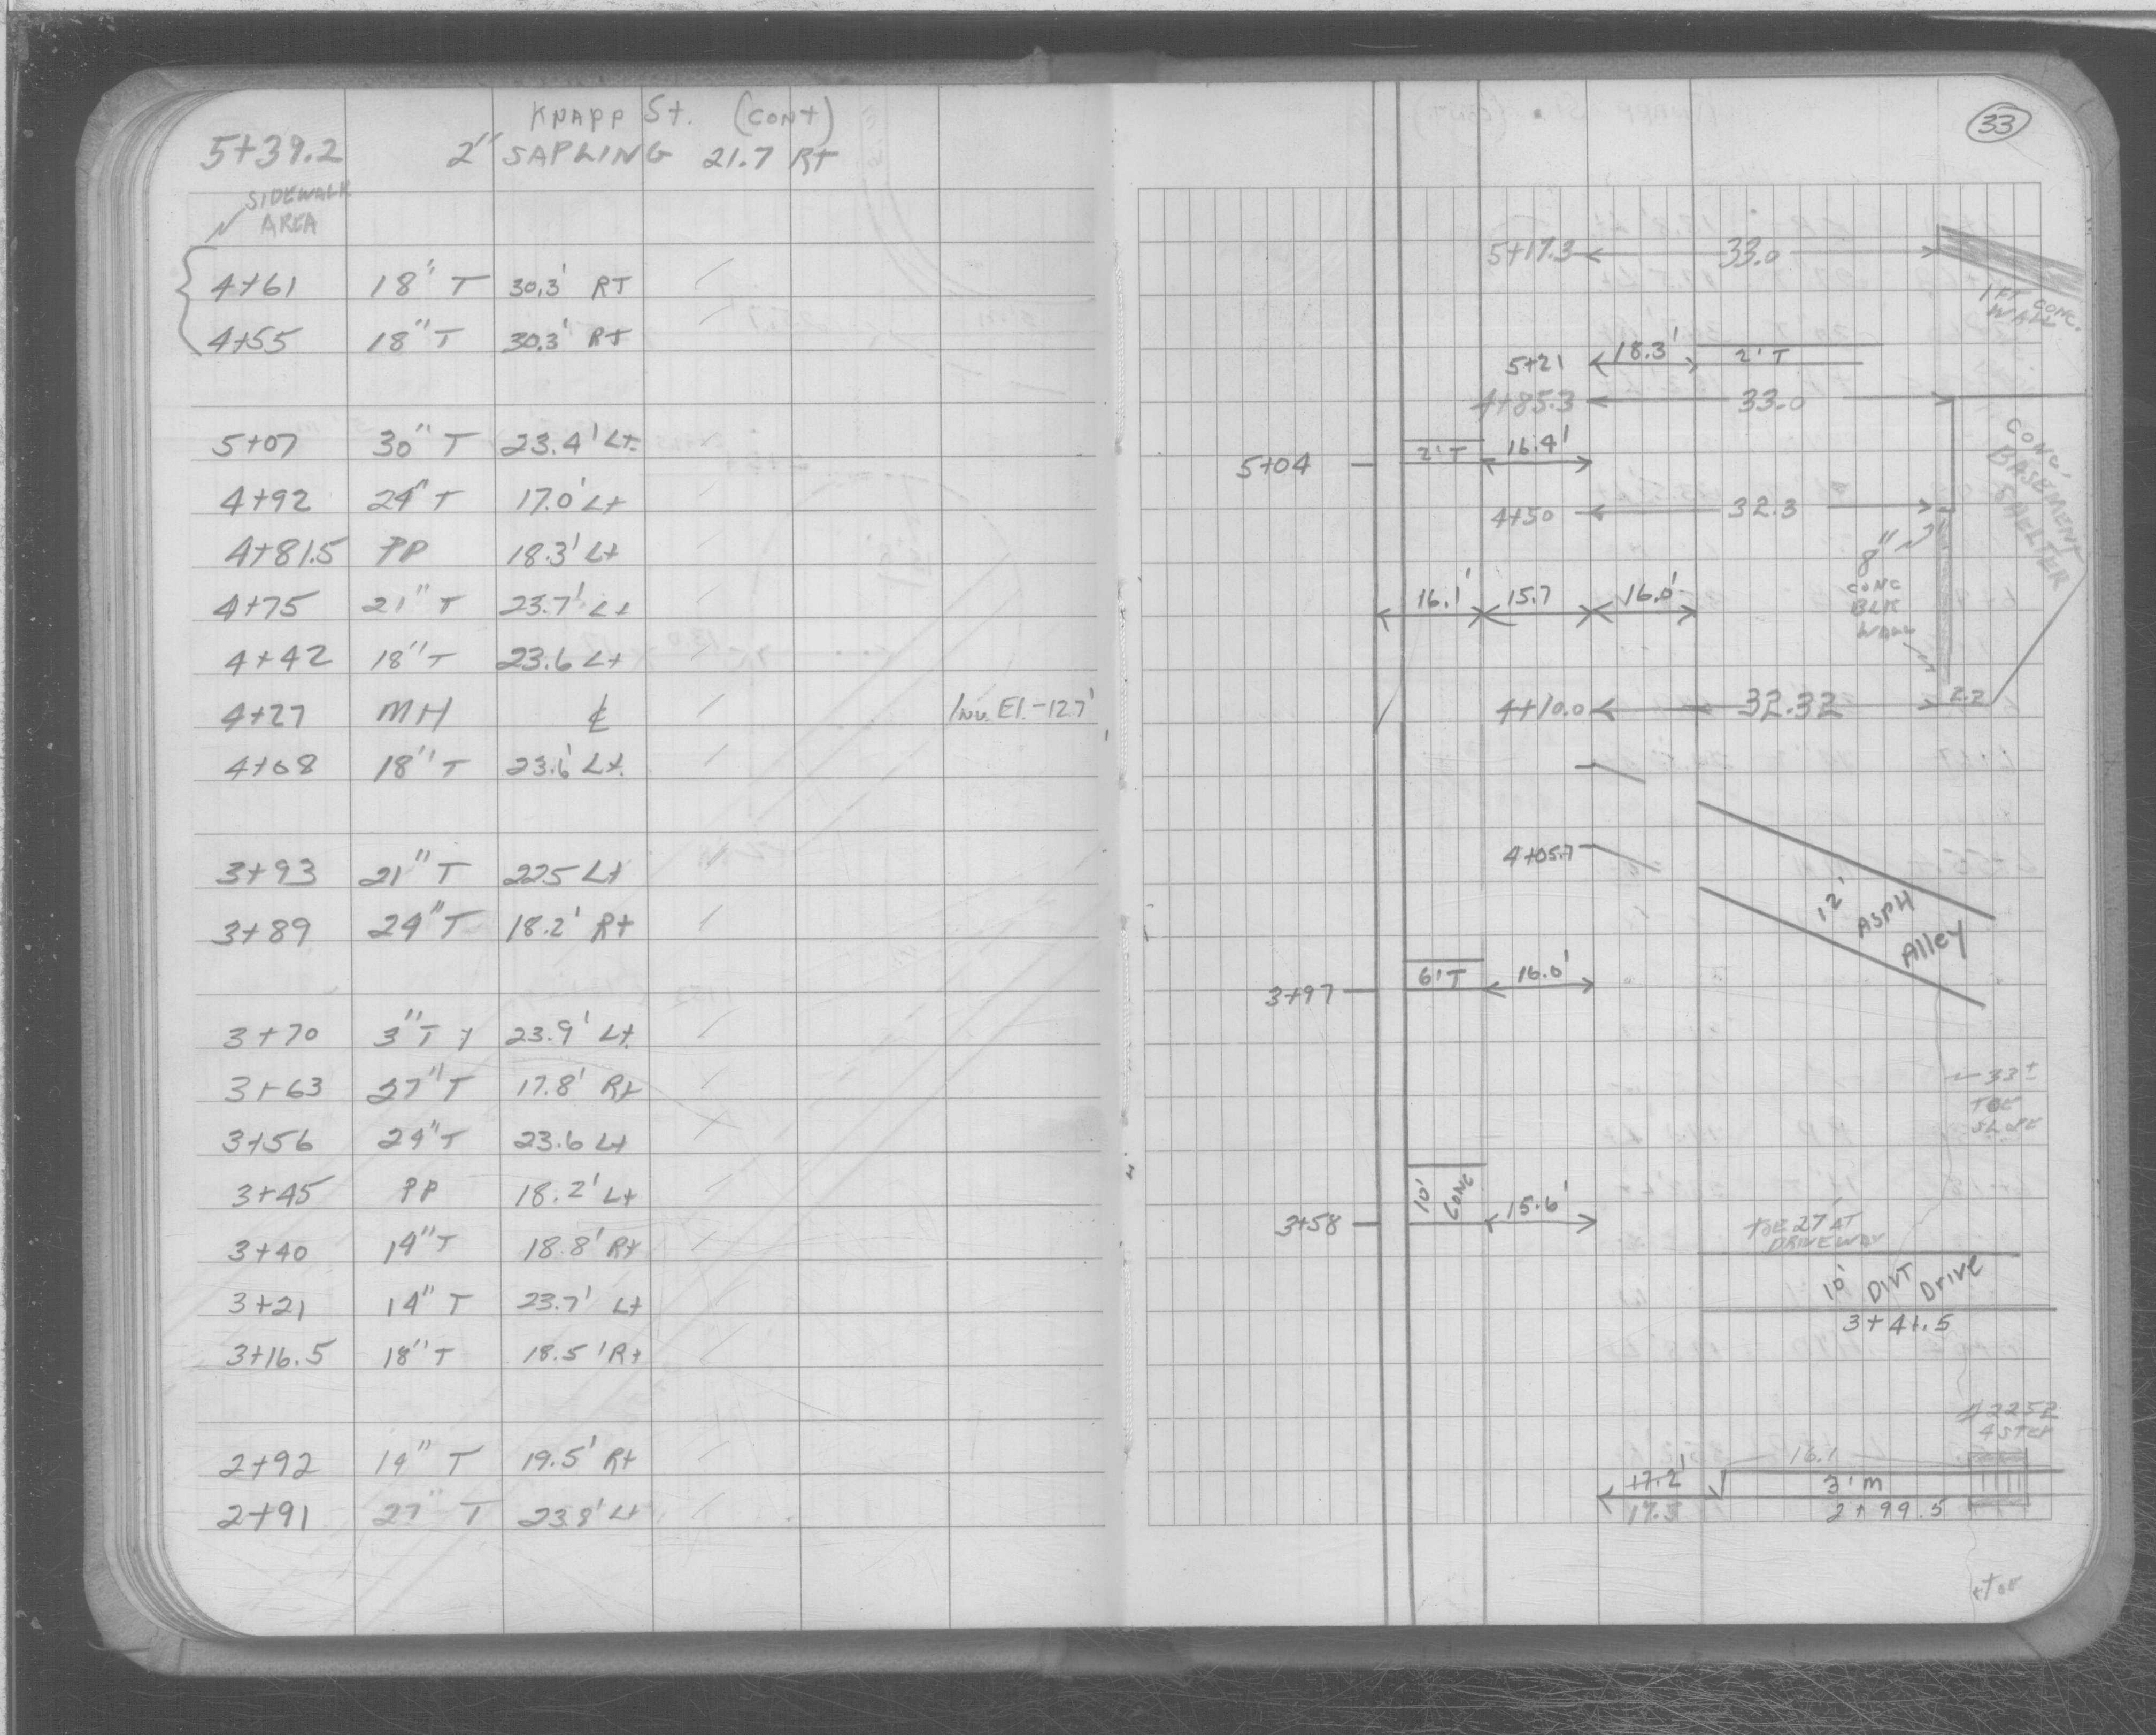 KNAPP St. (CONT)
5+39.2 2" SAPLING 21.7 Rt
SIDEWALK
AREA
4+61 18" T 30.3' RT
4+55 18" T 30.3' Rt
5+07 30" T 23.4' Lt.
4+92 24" T 17.0' Lt
4+81.5 PP 18.3' Lt
4+75 21" T 23.7' Lt
4+42 18" T 23.6 Lt
4+27 MH ℄ Inv. El. -12.7'
4+68 18" T 23.6' Lt.
3+93 21" T 22.5 Lt
3+89 24" T 18.2' Rt
3+70 3" T 23.9' Lt.
3+63 27" T 17.8' Rt
3+56 24" T 23.6 Lt
3+45 PP 18.2' Lt
3+40 14" T 18.8' Rt
3+21 14" T 23.7' Lt
3+16.5 18" T 18.5' Rt
2+92 14" T 19.5' Rt
2+91 27" T 23.8' Lt
33
5+17.3 33.0
1 FT CONC.
WALL
5+21 18.3' 2' T
4+85.3 33.0
5+04 2' T 16.4'
CONC.
BASEMENT
SHELTER
4+50 32.3
8"
CONC
BLK
WALL
16.1' 15.7 16.0'
4+10.0 32.32 2.2
4+05.7
12' ASPH Alley
3+97 6' T 16.0'
33±
TOE
SLOPE
3+58 10' CONC 15.6'
TOE 27 AT
DRIVEWAY
10' DIRT Drive
3+41.5
#2252
4 STEP
16.1
17.2' 3' m
17.5 2+99.5
TOE